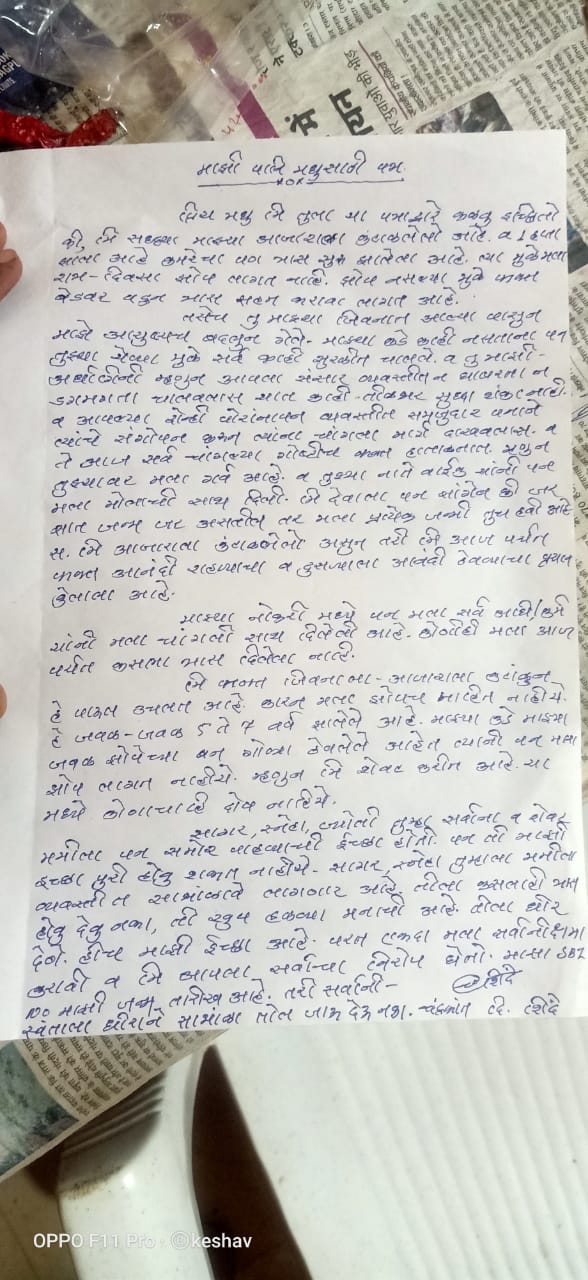 माझी पत्नि मधुसाठी पत्र
प्रिय मधु मि तुला या पत्राद्वारे कळवु इच्छितो
की, मि सध्या माझ्या आजाराला कंटाळलेलो आहे. व 1 हप्ता
झाला आहे कमरेचा पण त्रास सुरू झालेला आहे. त्या मुळे मला
रात्र-दिवसा झोप लागत नाही. झोप नसल्या मुळे फक्त
बेडवर पडुन त्रास सहन करावा लागत आहे.
तसेच तु माझ्या जिवनात आल्या पासुन
माझे आयुष्यच बदलुन गेले. माझ्या कडे काही नसताना पन
तुझ्या येण्या मुळे सर्व काही सुरळीत चालले. व तु माझी-
अर्धांगीनी म्हणुन आपला संसार व्यवस्तीतन न
डगमगता चालवलास यात काही-तीळभर सुध्दा शंका नाही.
व आपल्या दोन्ही पोरांनापन व्यवस्तीत समजुदार पनाने
त्यांचे संगोपन करून त्यांना चांगला मार्ग दाखवलास. व
ते आज सर्व चांगल्या गोष्टीच फक्त हाताळतात. म्हणुन
तुझ्यावर मला गर्व आहे. व तुझ्या नाते वाईक यांनी पन
मला मोलाची साथ दिली. मि देवाला पन सांगेन की जर
सात जन्म जर असतील तर मला प्रत्येक जन्मी तुच हवी आहे
स. मि आजाराला कंटाळलेलो असुन तरी मि आज पर्यंत
फक्त आनंदी राहण्याचा व दुसऱ्याला आनंदी ठेवण्याचा प्रयत्न
केलाला आहे.
माझ्या नोकरी मध्ये पन मला सर्व
यांनी मला चांगली साथ दिलेली आहे. कोणीही मला आज
पर्यंत कसला त्रास दिलेला नाही.
मि फक्त जिवनाला-आजाराला कंटाळुन
हे पाऊल उचलत आहे. कारन मला झोपच माहित नाहीये.
हे जवळ-जवळ 5 ते 7 वर्ष झालेले आहे. माझ्या कडे माझ्या
जवळ झोपेच्या पन गोळ्या ठेवलेले आहेत त्यांनी पन मला
झोप लागत नाहीये. म्हणुन मि शेवट करीत आहे. या
मध्ये कोणाचाही दोष नाहीये.
सागर, स्नेहा, ज्योती तुम्हा सर्वांना व शेवट
ममीला पन समोर पाहण्याची ईच्छा होती. पन ती माझी
ईच्छा पुरी होवु शकत नाहीये. सागर, स्नेहा तुम्हाला ममीला
व्यवस्तीत सांभाळावे लागणार आहे. तीला कसलाही त्रास
होवु देवु नका, ती खुप हळव्या मनाची आहे. तीला धीर
देणे. हीच माझी ईच्छा आहे. परत एकदा मला सर्वांनी क्षमा
करावी व मि आपला सर्वांचा निरोप घेतो. माझा SBI
माझी जन्म तारीख आहे. तरी सर्वांनी- शिंदे
स्वताला धीराने सांभाळा तोल जाऊ देऊ नका. चंद्रकांत दि. शिंदे
OPPO F11 Pro · @keshav